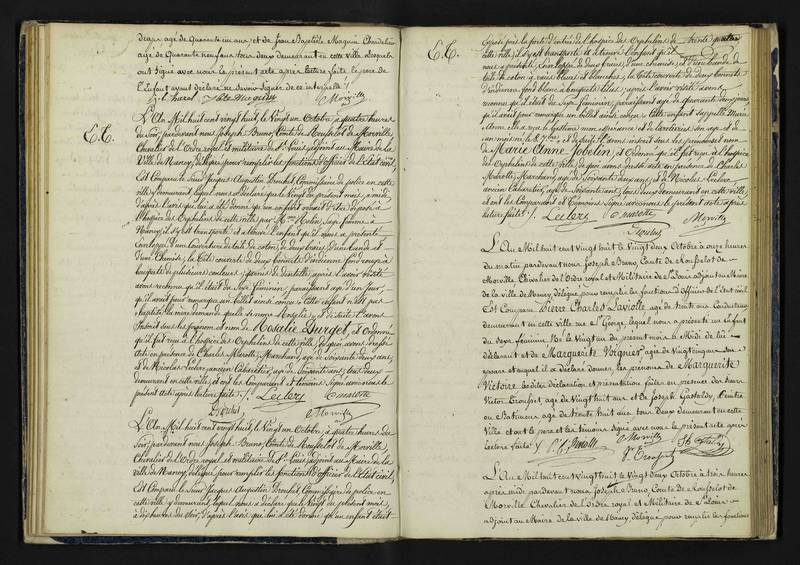 deux âgé de Quarante cinq ans, et de Jean Baptiste Maguin Chandelier
agé de Quarante neuf ans tous deux demeurant en cette ville, lesquels
ont signé avec nous le présent acte après lecture faite le père de
l'Enfant ayant déclaré ne savoir signer de ce interpellé ./.
Morville
E.C.
L'An Mil huit cent vingt huit, le Vingt un Octobre, à quatre heures
du Soir, pardevant nous Joseph Bruno, Comte de Rousselot de Morville,
Chevalier de l'Ordre royal et militaire de St Louis, adjoint au Maire de la
Ville de Nancy, délégué pour remplir les fonctions d'officier de l'État civil,
Est Comparu le Sieur Jacques Augustin Drouhet Commissaire de police en cette
ville y demeurant, lequel nous a déclaré que le Vingt du présent mois, à midi,
d'après l'avis qui lui a été donné qu'un enfant venait d'être déposé à
l'hospice des Orphelins de cette ville, par Mme Nolin, Sage femme à
Nancy, il s'y est transporté et a trouvé l'enfant qu'il nous a présenté
Enveloppé d'une couverture de toile de coton, de deux
d'une Chemise, la Tête couverte de deux bonnets d'indienne fond rouge à
bouquets de plusieurs couleurs, garnis de dentelle, après l'avoir visité
avons reconnu qu'il était du Sexe Féminin, paraissant âgé d'un Jour,
qu'il avait pour remarque un billet ainsi conçu : Cette enfant n'est pas
baptisée la mère demande quelle se nomme Rosalie, et de suite l'avons
Inscrit sous les prénom et nom de Rosalie Durget, et Ordonné
qu'il fut remis à l'hospice des Orphelins de cette ville, de quoi avons dressé
acte en présence de Charles Marotte, Marchand, agé de Soixante deux ans,
et de Nicolas Leclerc, ancien Cabaretier, agé de Soixante ans, tous deux
demeurant en cette ville, et ont les Comparant et témoins Signé avec nous le
présent acte après lecture faite ./. Leclerc Marotte
Drouhet Morville
L'An Mil huit cent Vingt huit, le Vingt un Octobre, à quatre heures du
Soir, pardevant nous Joseph Bruno, Comte de Rousselot de Morville,
Chevalier de l'Ordre royal et militaire de St Louis, adjoint au Maire de la
Ville de Nancy, délégué pour remplir les fonctions d'officier de l'État civil,
Est Comparu le Sieur Jacques Augustin Drouhet Commissaire de police en
cette ville y demeurant, lequel nous a déclaré que le Vingt du présent mois,
à dix heures du Soir, d'après l'avis qui lui a été donné qu'un enfant était
E.C.
Exposé près la porte d'entrée de l'hospice des Orphelins de
cette ville, il s'y est transporté et a trouvé l'enfant qu'il
nous a présenté, Enveloppé de deux d'une chemise, et d'une bande de
toile de coton à raies bleues et blanches, la Tête couverte de deux bonnets
d'indienne fond blanc à bouquets lilas ; après l'avoir visité avons
reconnu qu'il était du Sexe Féminin, paraissant agé de quarante deux jours,
qu'il avait pour remarque un billet ainsi conçu : Cette enfant s'appelle Marie
Anne, et de suite l'avons inscrit sous les prénoms et nom
de Marie Anne Jobelin, et Ordonné qu'il fut remis à l'hospice
des Orphelins de cette ville, de quoi avons dressé acte en présence de Charles
Marotte, Marchand, agé de Soixante deux ans, et de Nicolas Leclerc,
ancien Cabaretier, agé de Soixante ans, tous deux demeurant en cette ville,
et ont les Comparant et témoins Signé avec nous le présent acte après
lecture faite ./. Leclerc Marotte Morville
Drouhet
L'An Mil huit cent Vingt huit le Vingt deux Octobre à onze heures
du matin, pardevant nous Joseph Bruno Comte de Rousselot de
Morville, Chevalier de l'Ordre royal et Militaire de St Louis adjoint au Maire
de la ville de Nancy délégué pour remplir les fonctions d'Officier de l'état civil
Est Comparu Pierre Charles Laviolle, agé de trente ans Conducteur
demeurant en cette ville rue St George, lequel nous a présenté un Enfant
du Sexe féminin Né le Vingt un du présent mois à Midi de lui
déclarant et de Marguerite Voignier, agée de Vingt cinq ans Son
épouse et auquel il a déclaré donner les prénoms de Marguerite
Victoire Lesdites déclaration et présentation faites en présence des Sieurs
Victor Crouset, agé de Vingt huit ans et de Joseph Gastaldy, Peintre
en Batiment agé de trente huit ans tous deux demeurant en cette
Ville et ont le père et les témoins signé avec nous le présent acte après
lecture faite ./. Morville
L'An Mil huit cent vingt huit le Vingt deux Octobre à trois heures
après midi pardevant nous Joseph Bruno Comte de Rousselot de
Morville Chevalier de l'Ordre royal et Militaire de St Louis
adjoint au Maire de la ville de Nancy délégué pour remplir les fonctions